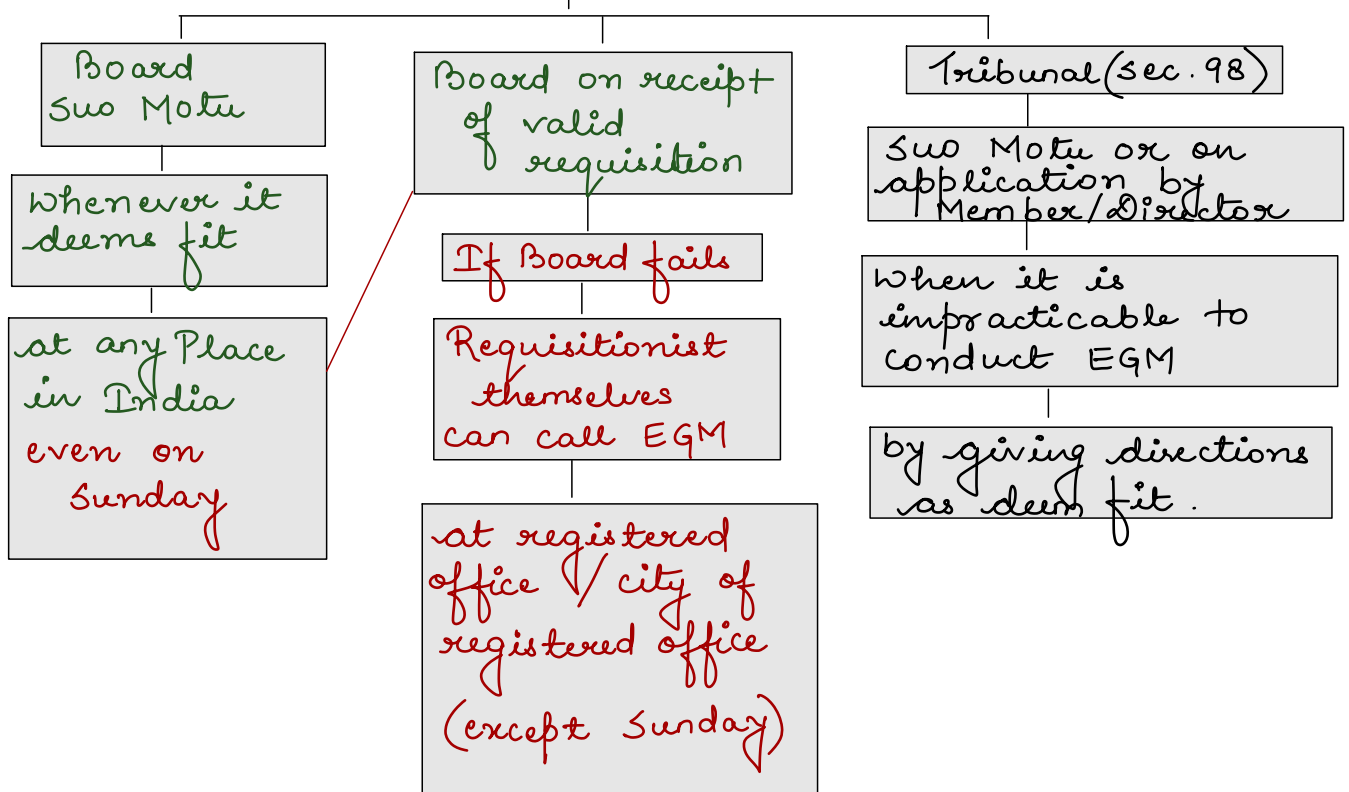 Board
suo Motu
whenever it
deems fit
at any Place
in India
even on
Sunday
Board on receipt
of valid
requisition
If Board fails
Requisitionist
themselves
can call EGM
at registered
office / city of
registered office
(except Sunday)
Tribunal (sec. 98)
Suo Motu or on
application by
Member/Director
When it is
impracticable to
conduct EGM
by giving directions
as deem fit.